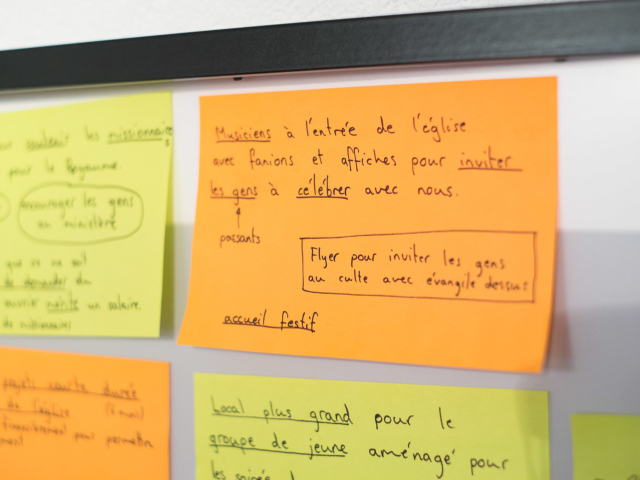 soutenir les missionnaires
pour le Royaume.
encourager les gens
au ministère
que ce ne soit
de demander du
ouvrir un salaire
de missionnaire
Musiciens à l'entrée de l'église
avec fanions et affiches pour inviter
les gens à célébrer avec nous.
passants
Flyer pour inviter les gens
au culte avec évangile dessus
accueil festif
projets courte durée
de l'église (6 mois)
financièrement pour permettre
Local plus grand pour le
groupe de jeune aménagé pour
les